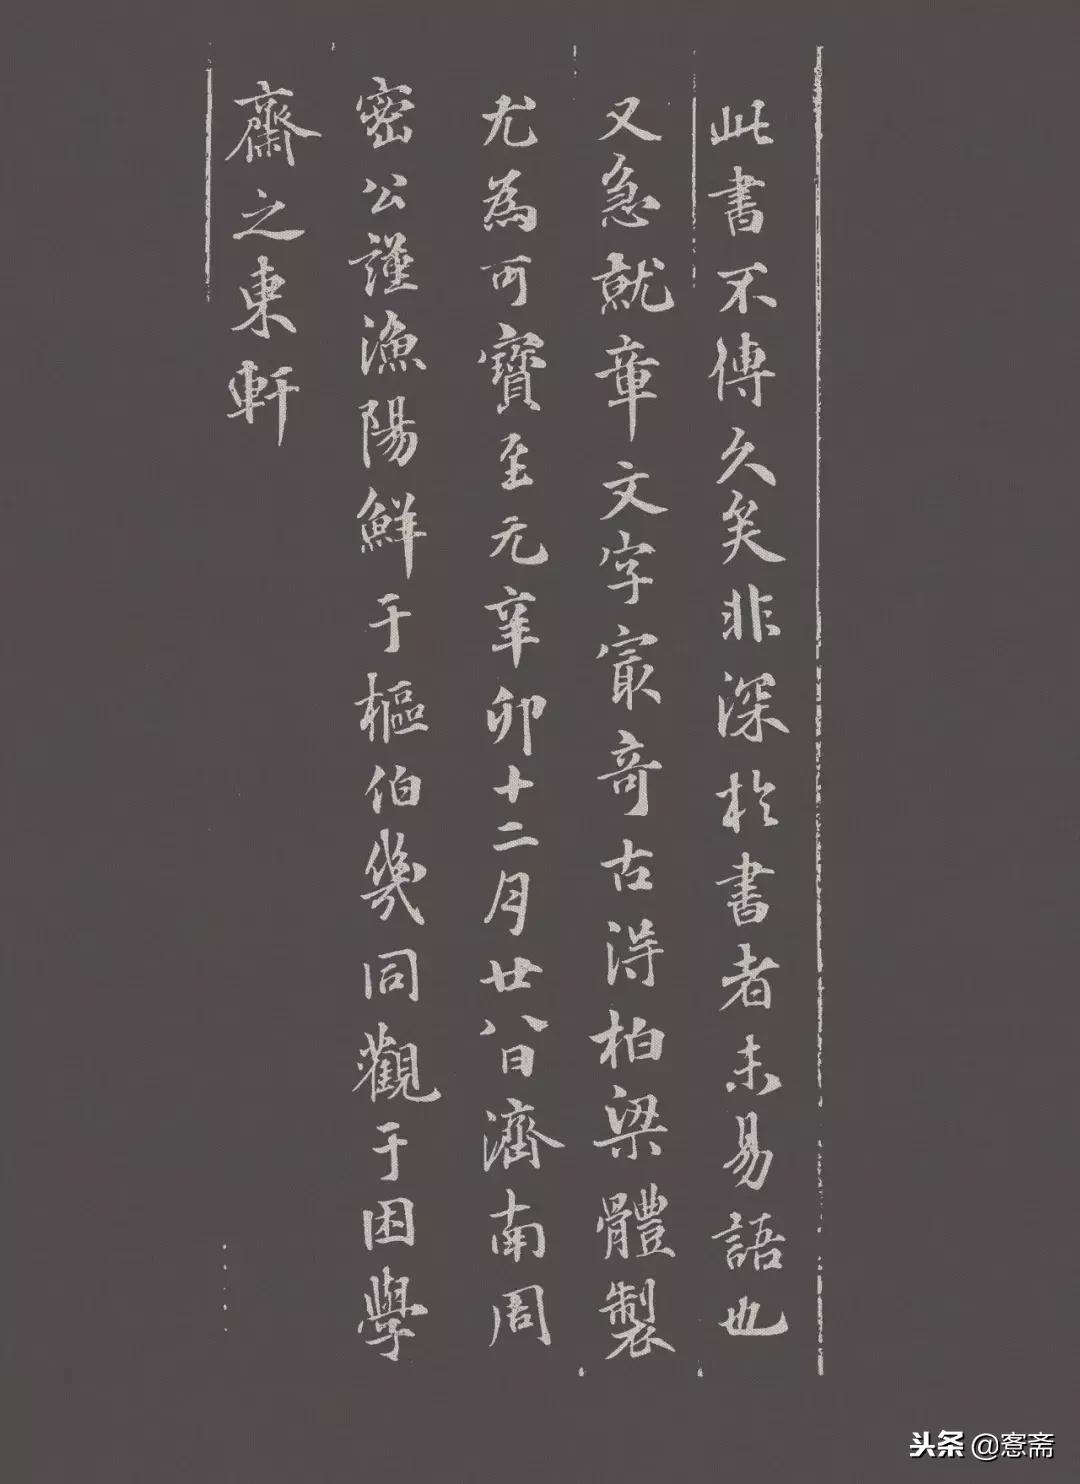 此書不傳久矣非深於書者未易語也
又急就章文字冣奇古得柏梁體製
尤為可寶至元辛卯十二月廿八日濟南周
密公謹漁陽鮮于樞伯幾同觀于困學
齋之東軒
头条 @愙斋